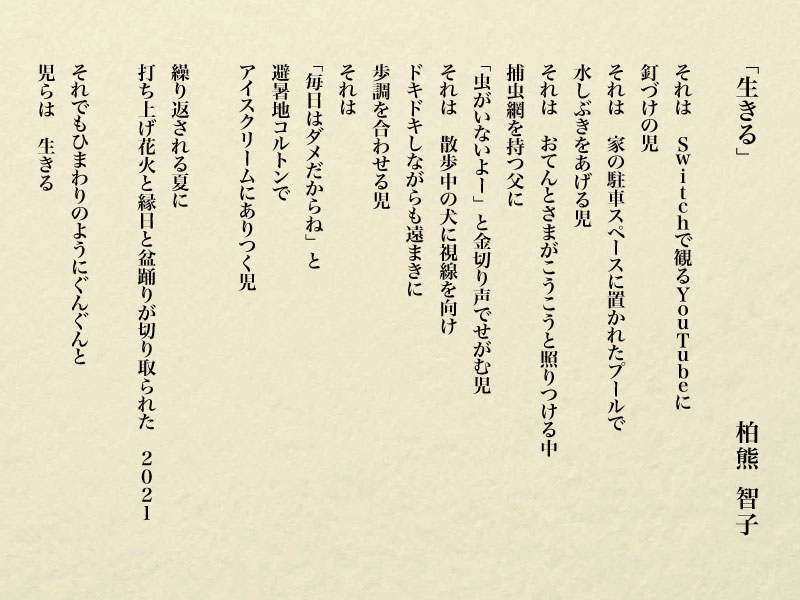 「生きる」
柏熊 智子
それは　Switchで観るYouTubeに
釘づけの児
それは　家の駐車スペースに置かれたプールで
水しぶきをあげる児
それは　おてんとさまがこうこうと照りつける中
捕虫網を持つ父に
「虫がいないよー」と金切り声でせがむ児
それは　散歩中の犬に視線を向け
ドキドキしながらも遠まきに
歩調を合わせる児
それは
「毎日はダメだからね」と
避暑地コルトンで
アイスクリームにありつく児
繰り返される夏に
打ち上げ花火と縁日と盆踊りが切り取られた　2021
それでもひまわりのようにぐんぐんと
児らは　生きる